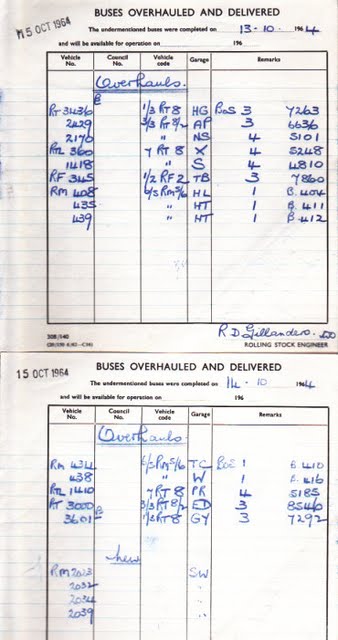 BUSES OVERHAULED AND DELIVERED
15 OCT 1964
The undermentioned buses were completed on 13-10- 1964
and will be available for operation on 196
Vehicle No. Council No. Vehicle code Garage Remarks
Overhauls.
RT 3436 B 1/3 RT 8 HG BOS 3 7263
2429 3/3 RT 8/2 AP 3 6636
2170 " NS 4 5101
RTL 360 7 RT 8 X 4 5248
1418 " S 4 4810
RF 345 1/2 RF 2 TB 3 7860
RM 408 6/5 RM 5/6 HL 1 B.404
435 " HT 1 B.411
439 " HT 1 B.412
R D Gillanders.
ROLLING STOCK ENGINEER
BUSES OVERHAULED AND DELIVERED
15 OCT 1964
The undermentioned buses were completed on 14-10 1964
and will be available for operation on 196
Vehicle No. Council No. Vehicle code Garage Remarks
Overhauls.
RM 434 6/5 RM 5/6 TC BOS 1 B 410
438 " W 1 B.416
RTL 1410 7 RT 8 PR 4 5185
RT 3000 3/3 RT 8/2 ED 3 8546
3601 B 1/3 RT 8 GY 3 7292
New
RM 2023 SW
2032 "
2034 "
2039 "